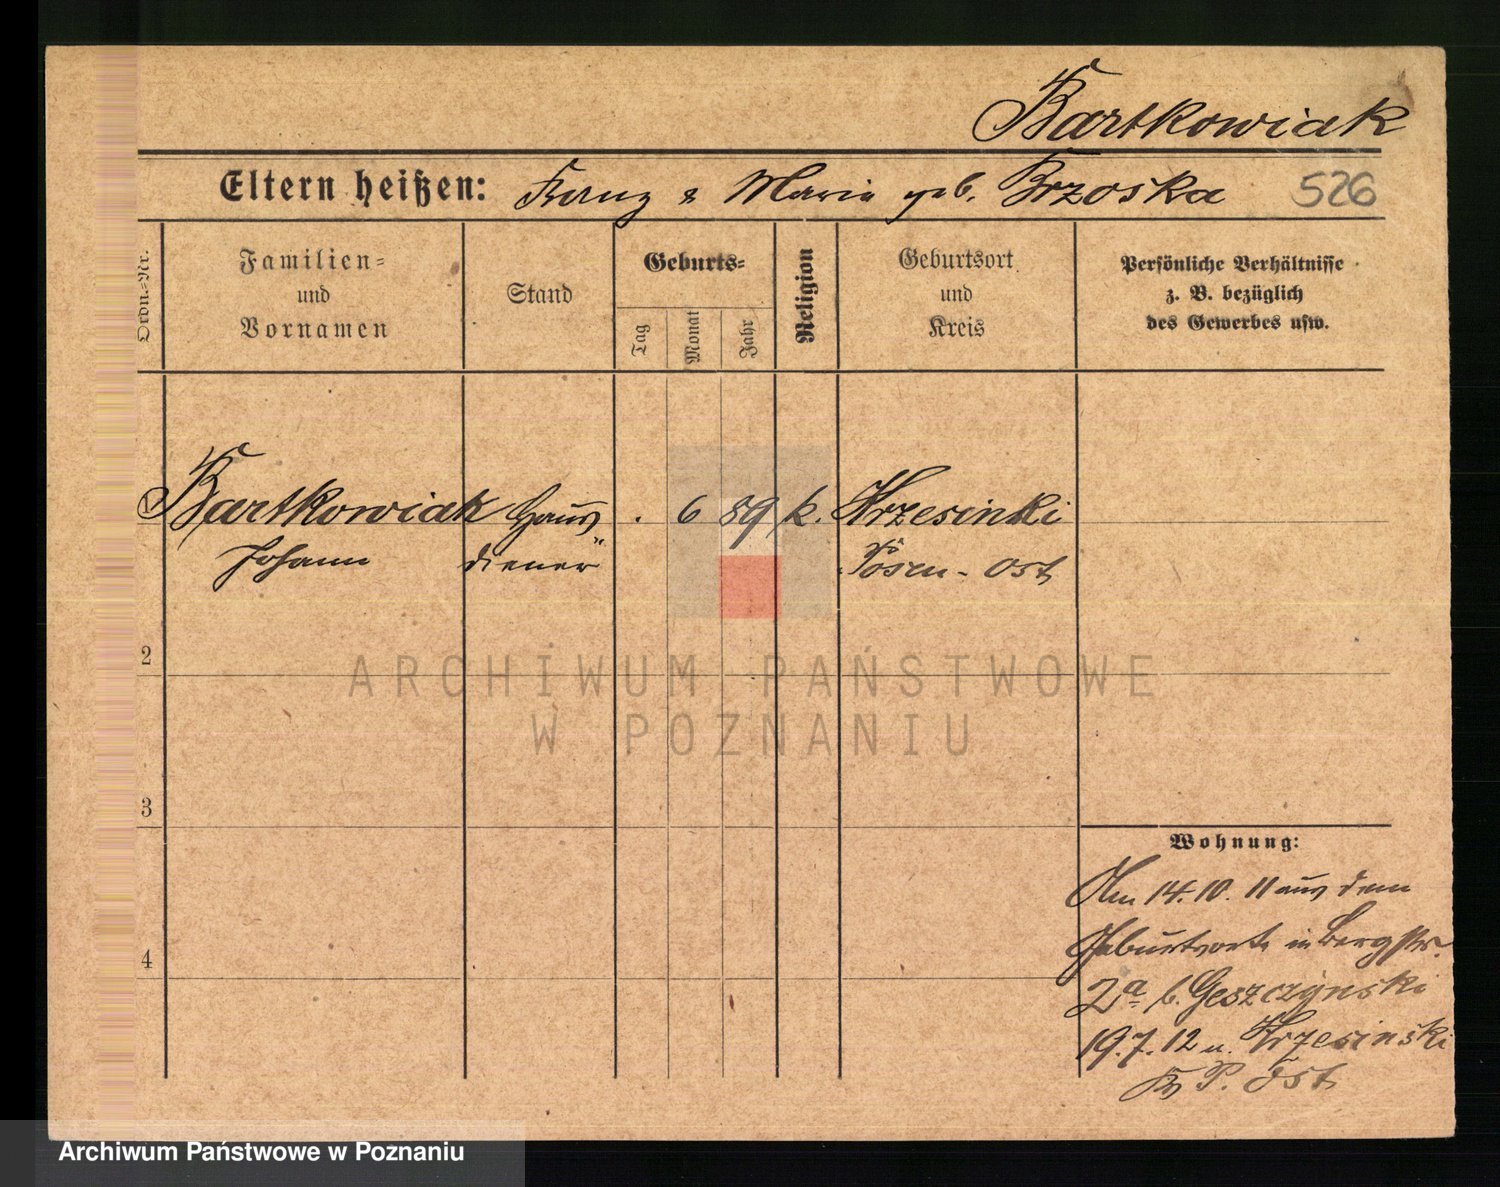 Bartkowiak
Eltern heißen: Franz & Maria geb. Brzoska 526
Ordn.-Nr.
Familien-
und
Vornamen
Stand
Geburts-
Tag
Monat
Jahr
Religion
Geburtsort
und
Kreis
Persönliche Verhältnisse
z. B. bezüglich
des Gewerbes usw.
Bartkowiak Haus . 6 89 k. Krzesinki
Johann diener Posen-Ost
2
ARCHIWUM PAŃSTWOWE
W POZNANIU
3
Wohnung:
Am 14.10.11 aus dem
Geburtsorte in Bergstr.
4
2a b. Geszczynski
19.7.12 n. Krzesinski
P. Ost
Archiwum Państwowe w Poznaniu